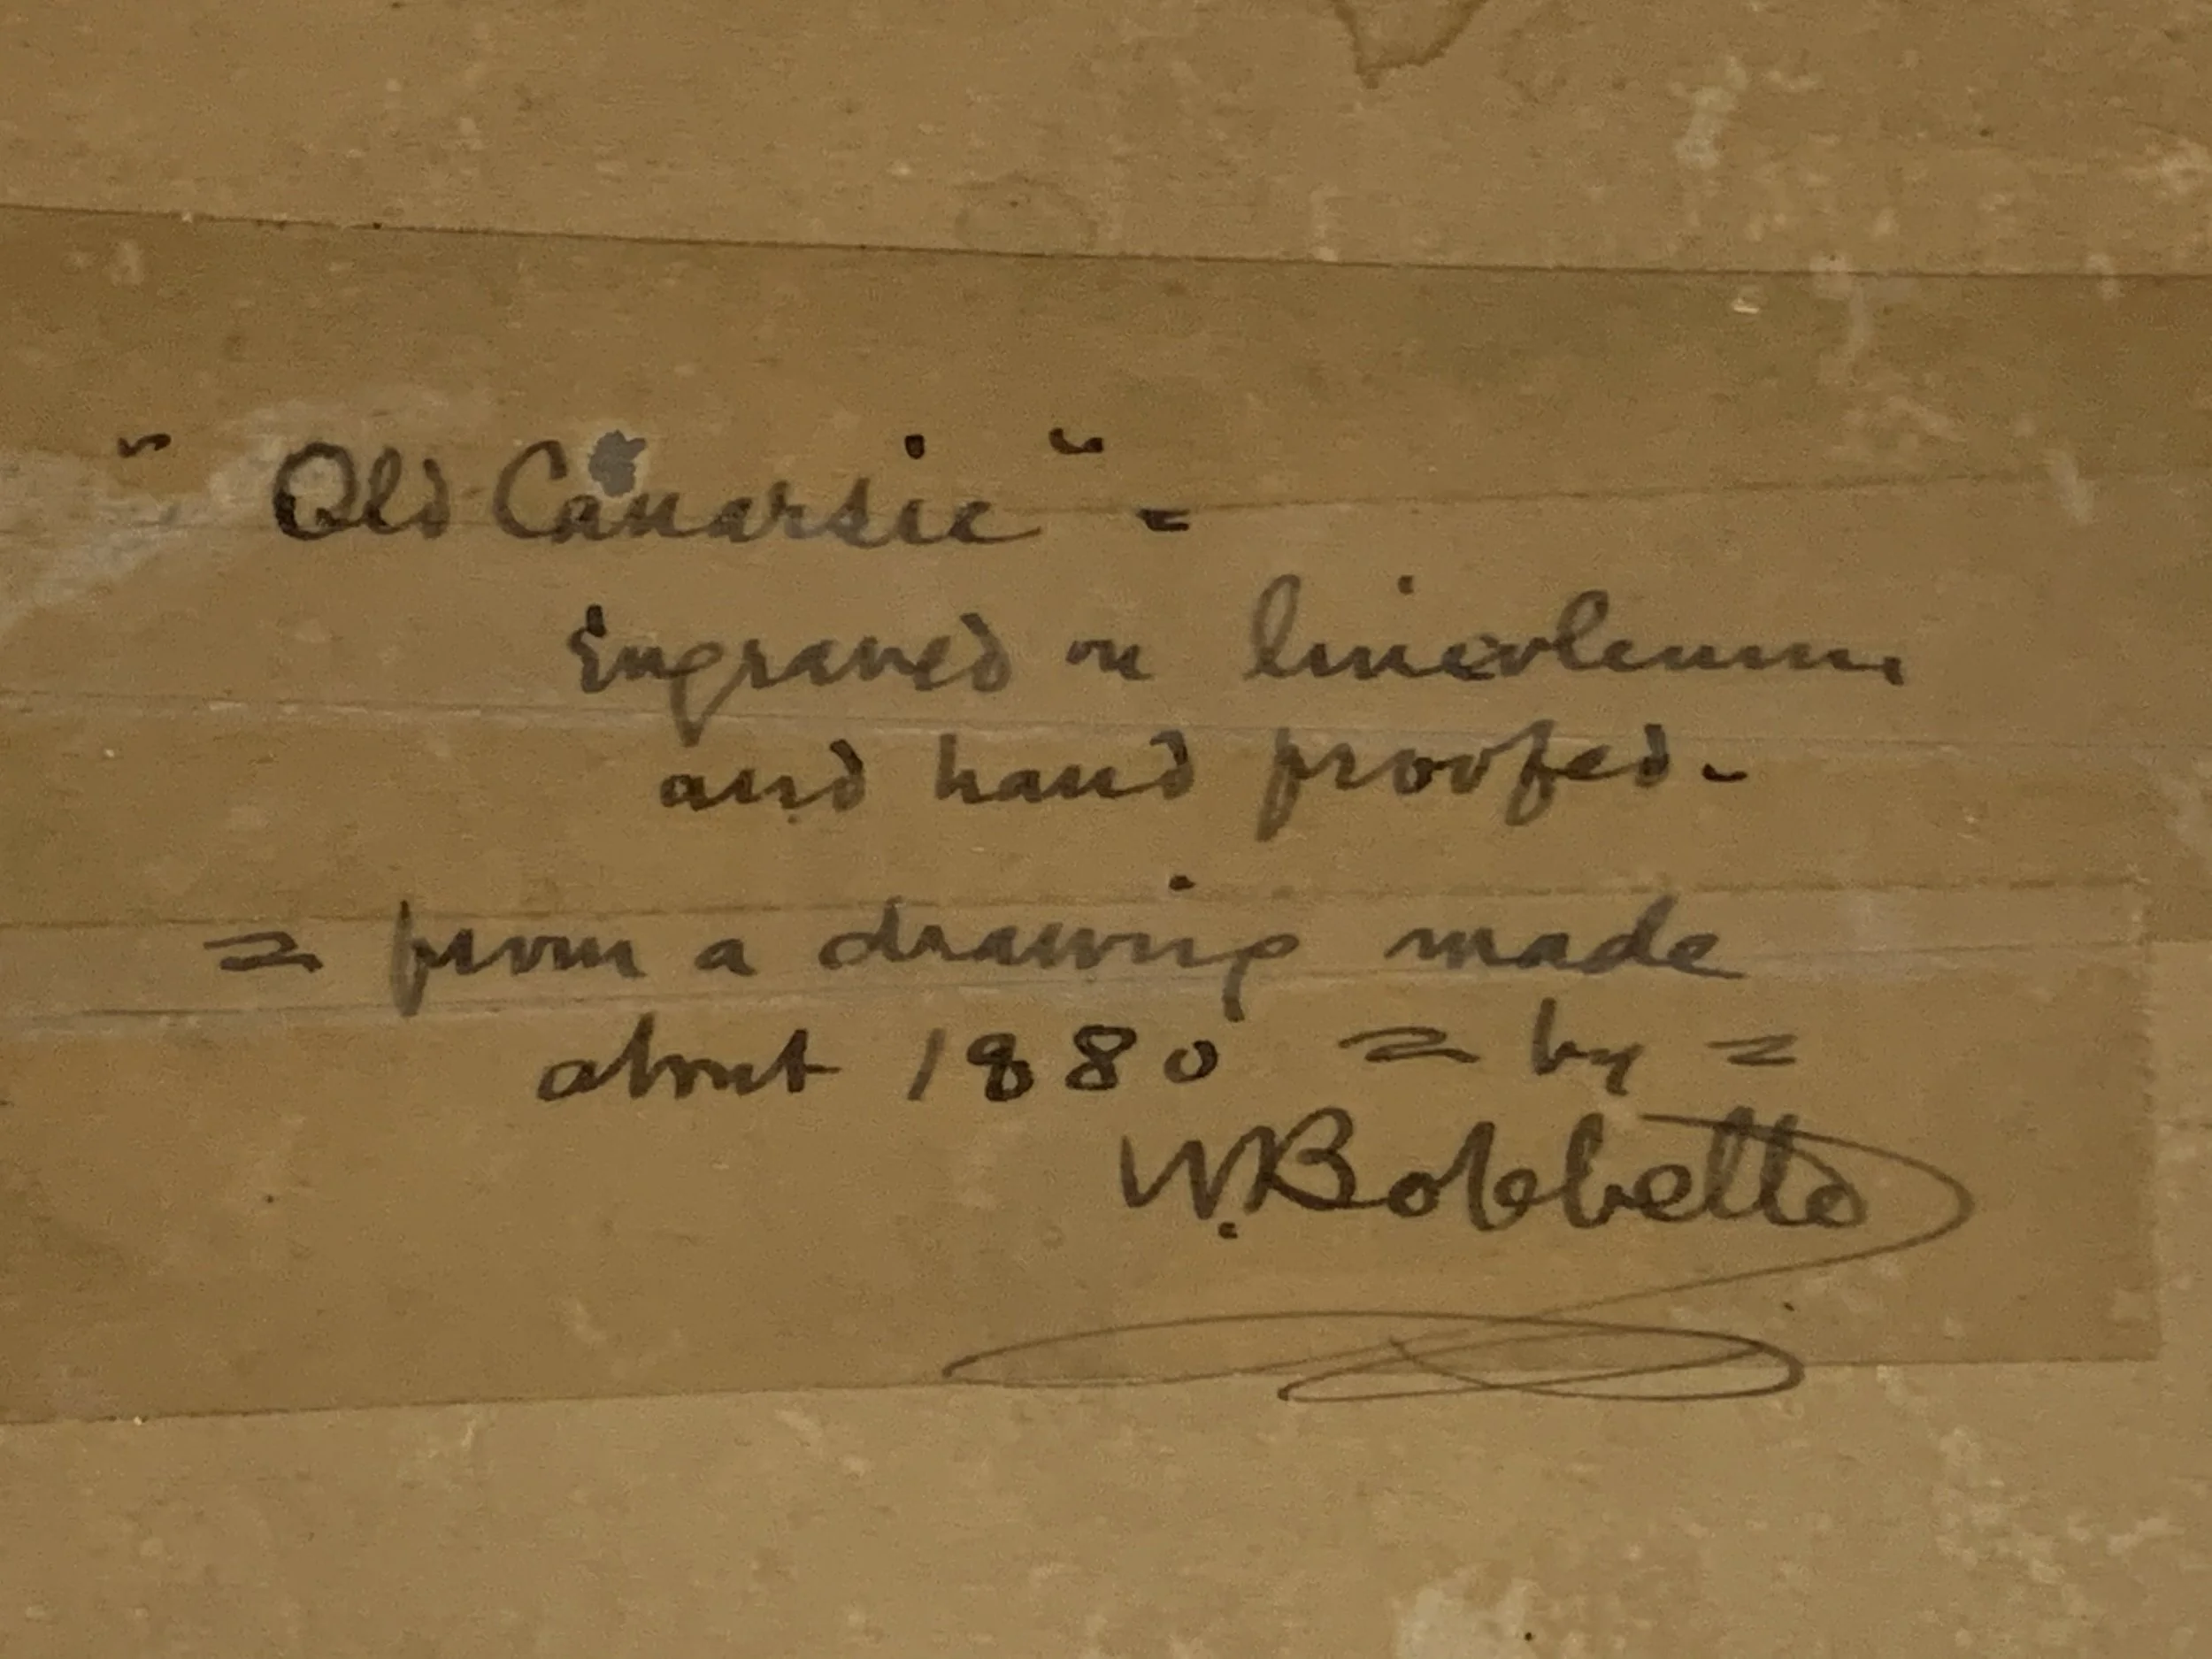 "Old Canarsie" =
Engraved on lineoleum
and hand proofed -
= from a drawing made
about 1880 = by =
W. Bobbett